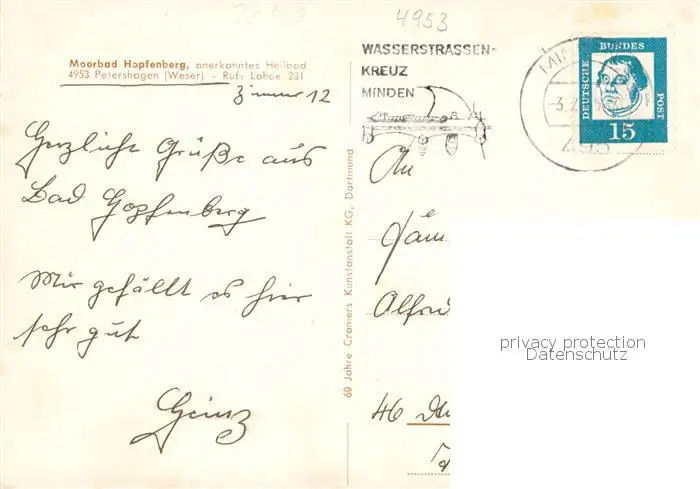 4953
Moorbad Hopfenberg, anerkanntes Heilbad
4953 Petershagen (Weser) - Ruf: Lahde 231
Zimmer 12
Herzliche Grüße aus
Bad Hopfenberg
Mir gefällt es hier
sehr gut
Heinz
60 Jahre Cramers Kunstanstalt KG, Dortmund
WASSERSTRASSEN-
KREUZ
MINDEN
DEUTSCHE BUNDES POST
15
An
Fam
Alfred
46
privacy protection
Datenschutz